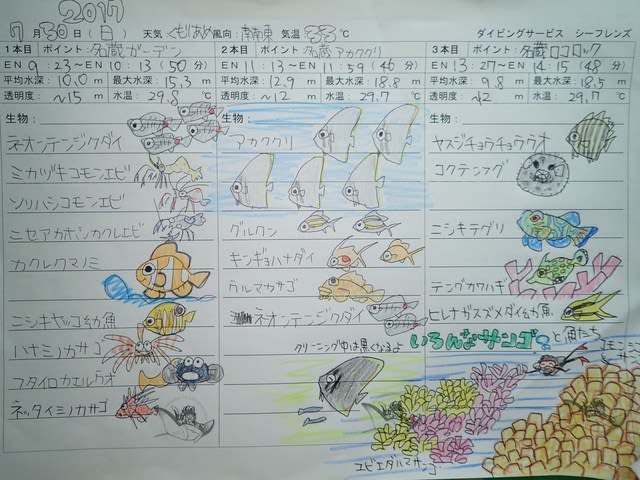 2017
7月30日(日) 天気 くもり/あめ 風向: 南南東 気温 33℃ ダイビングサービス シーフレンズ
1本目 ポイント: 名蔵ガーデン
EN 9:23～EN 10:13 (50分)
平均水深: 10.0 m 最大水深: 15.3 m
透明度: ~15 m 水温: 29.8 ℃
生物:
ネオンテンジクダイ
ミカヅキコモンエビ
ソリハシコモンエビ
ニセアカホシカクレエビ
カクレクマノミ
ニシキヤッコ幼魚
ハナミノカサゴ
フタイロカエルウオ
ネッタイミノカサゴ
2本目 ポイント: 名蔵アカククリ
EN 11:13～EN 11:59 (46分)
平均水深: 12.9 m 最大水深: 18.8 m
透明度: ~12 m 水温: 29.7 ℃
生物:
アカククリ
グルクン
キンギョハナダイ
ウルマカサゴ
ネオンテンジクダイ
クリーニング中は黒くなるよ
3本目 ポイント: 名蔵ロコロック
EN 13:27～EN 14:15 (48分)
平均水深: 9.8 m 最大水深: 18.5 m
透明度: ~12 m 水温: 29.7 ℃
生物:
ヤスジチョウチョウウオ
コクテンフグ
ニシキテグリ
テングカワハギ
ヒレナガスズメダイ幼魚
いろんなサンゴ と魚たち
ユビエダハマサンゴ